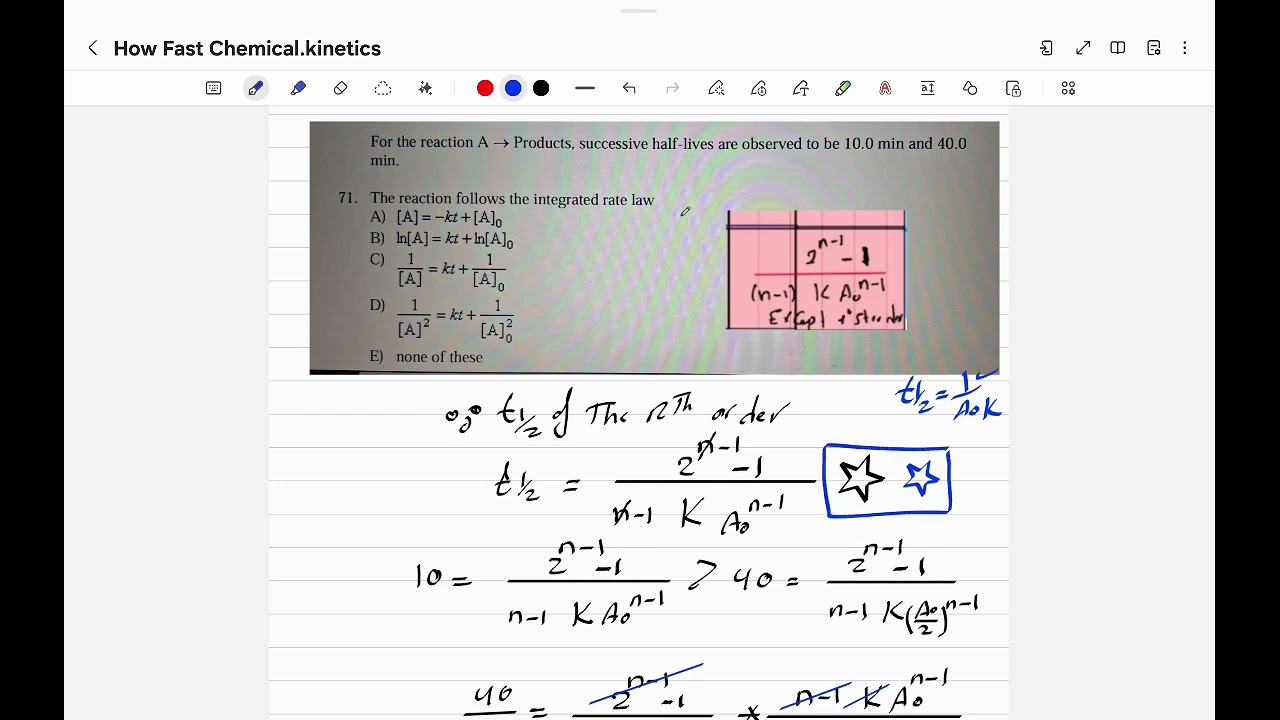 How Fast Chemical.kinetics
For the reaction A → Products, successive half-lives are observed to be 10.0 min and 40.0
min.
71. The reaction follows the integrated rate law
A) [A] = −kt + [A]₀
B) ln[A] = kt + ln[A]₀
C) 1/[A] = kt + 1/[A]₀
D) 1/[A]² = kt + 1/[A]₀²
E) none of these
2^(n-1) - 1
(n-1) K A₀^(n-1)
Except 1st order
t½ = 1/A₀K
t½ of The nTh order
t½ = 2^(n-1) - 1 / n-1 K A₀^(n-1)
10 = 2^(n-1) - 1 / n-1 K A₀^(n-1) > 40 = 2^(n-1) - 1 / n-1 K (A₀/2)^(n-1)
40 = 2^(n-1) - 1 * n-1 K A₀^(n-1)